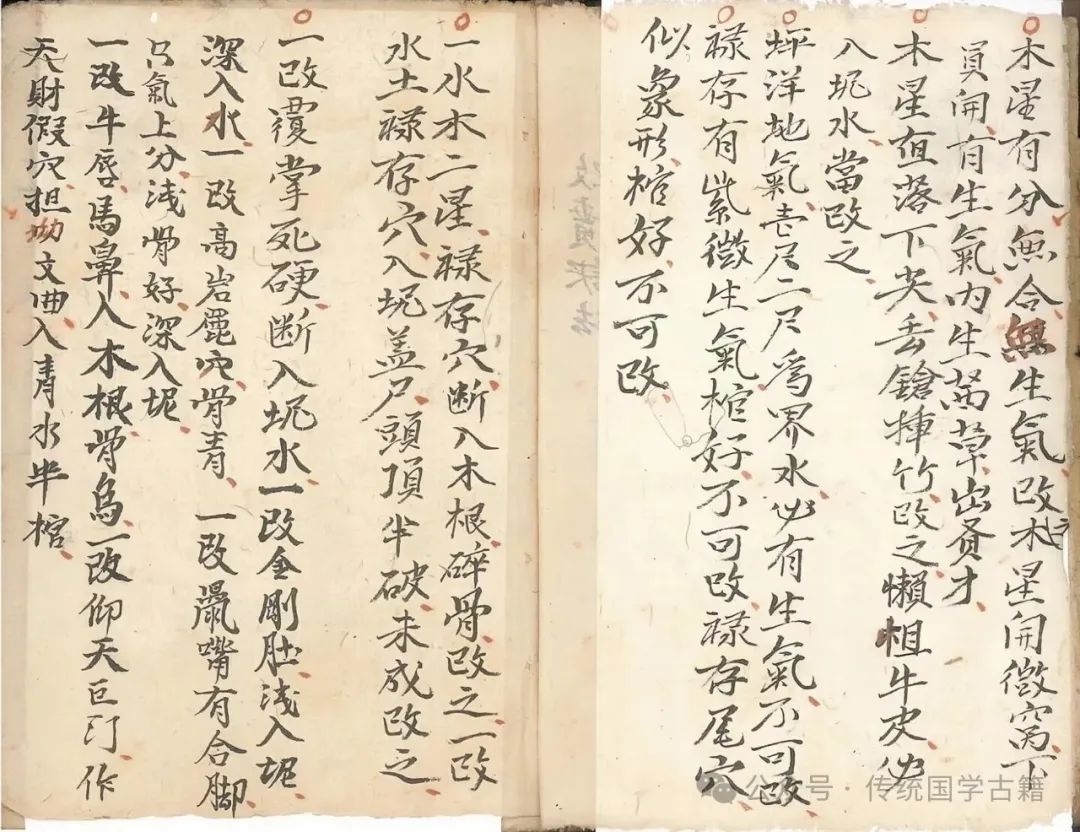 木星有分無合無生氣改木星開微窝下
員開有生氣内生萬草出賢才
木星直落下尖去鎗揷竹改之懶袓牛皮必
入坭水當改之
坪洋地氣壱尺二尺爲界水必有生氣不可改
禄存有紫微生氣棺好不可改禄存尾穴
似象形棺好不可改
一水木二星禄存穴断入木根碎骨改之一改
水土禄存穴入坭盖尸頭頂半破未成改之
一改覆掌死硬断入坭水一改金剛肚浅入坭
深入水一改高岩穴骨青一改鼠嘴有合脚
只氣上分浅骨好深入坭
一改牛唇馬鼻入木根骨烏一改仰天巨汀作
天財假穴担坳文曲入青水半棺
公众号 传统国学古籍